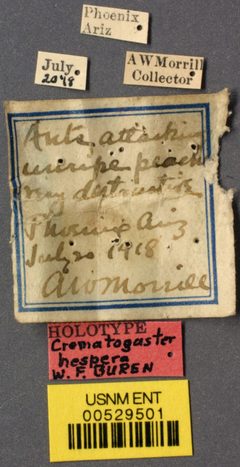 Phoenix
Ariz
July.
2048
A W Morrill
Collector
Ants attacking
unripe peach
very destructive
Phoenix Ariz
July 20 1918
AWMorrill
HOLOTYPE
Crematogaster
hespera
W. F. BUREN
USNM ENT
00529501